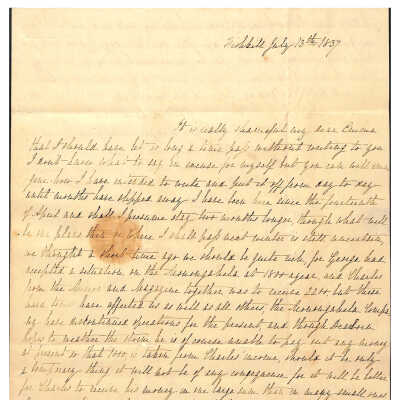 Fishkill July 13th 1837
It is really shameful my dear Emma
that I should have let so long a time pass without writing to you
I don't know what to say in excuse for myself but you can well ima
gine how I have intended to write and put it off from day to day
until months have slipped away. I have been here since the fourteenth
of April and shall I presume stay two months longer, though what will
be our plans then or where I shall pass next winter is still uncertain,
we thought a short time ago we should be quite rich, for George had
accepted a situation on the Monongahela at 1800 a year and Charles
from the and Magazine together was to receive 2200 but these
hard times have affected us as well as all others, the Monongahela Compa
ny have discontinued operations for the present and though
hopes to weather the storm he is of course unable to pay out any money
at present so that 1000 is taken from Charles income, should it be only
a temporary thing it will not be of any consequence for it will be better
for Charles to receive his money in one large sum than in many small ones